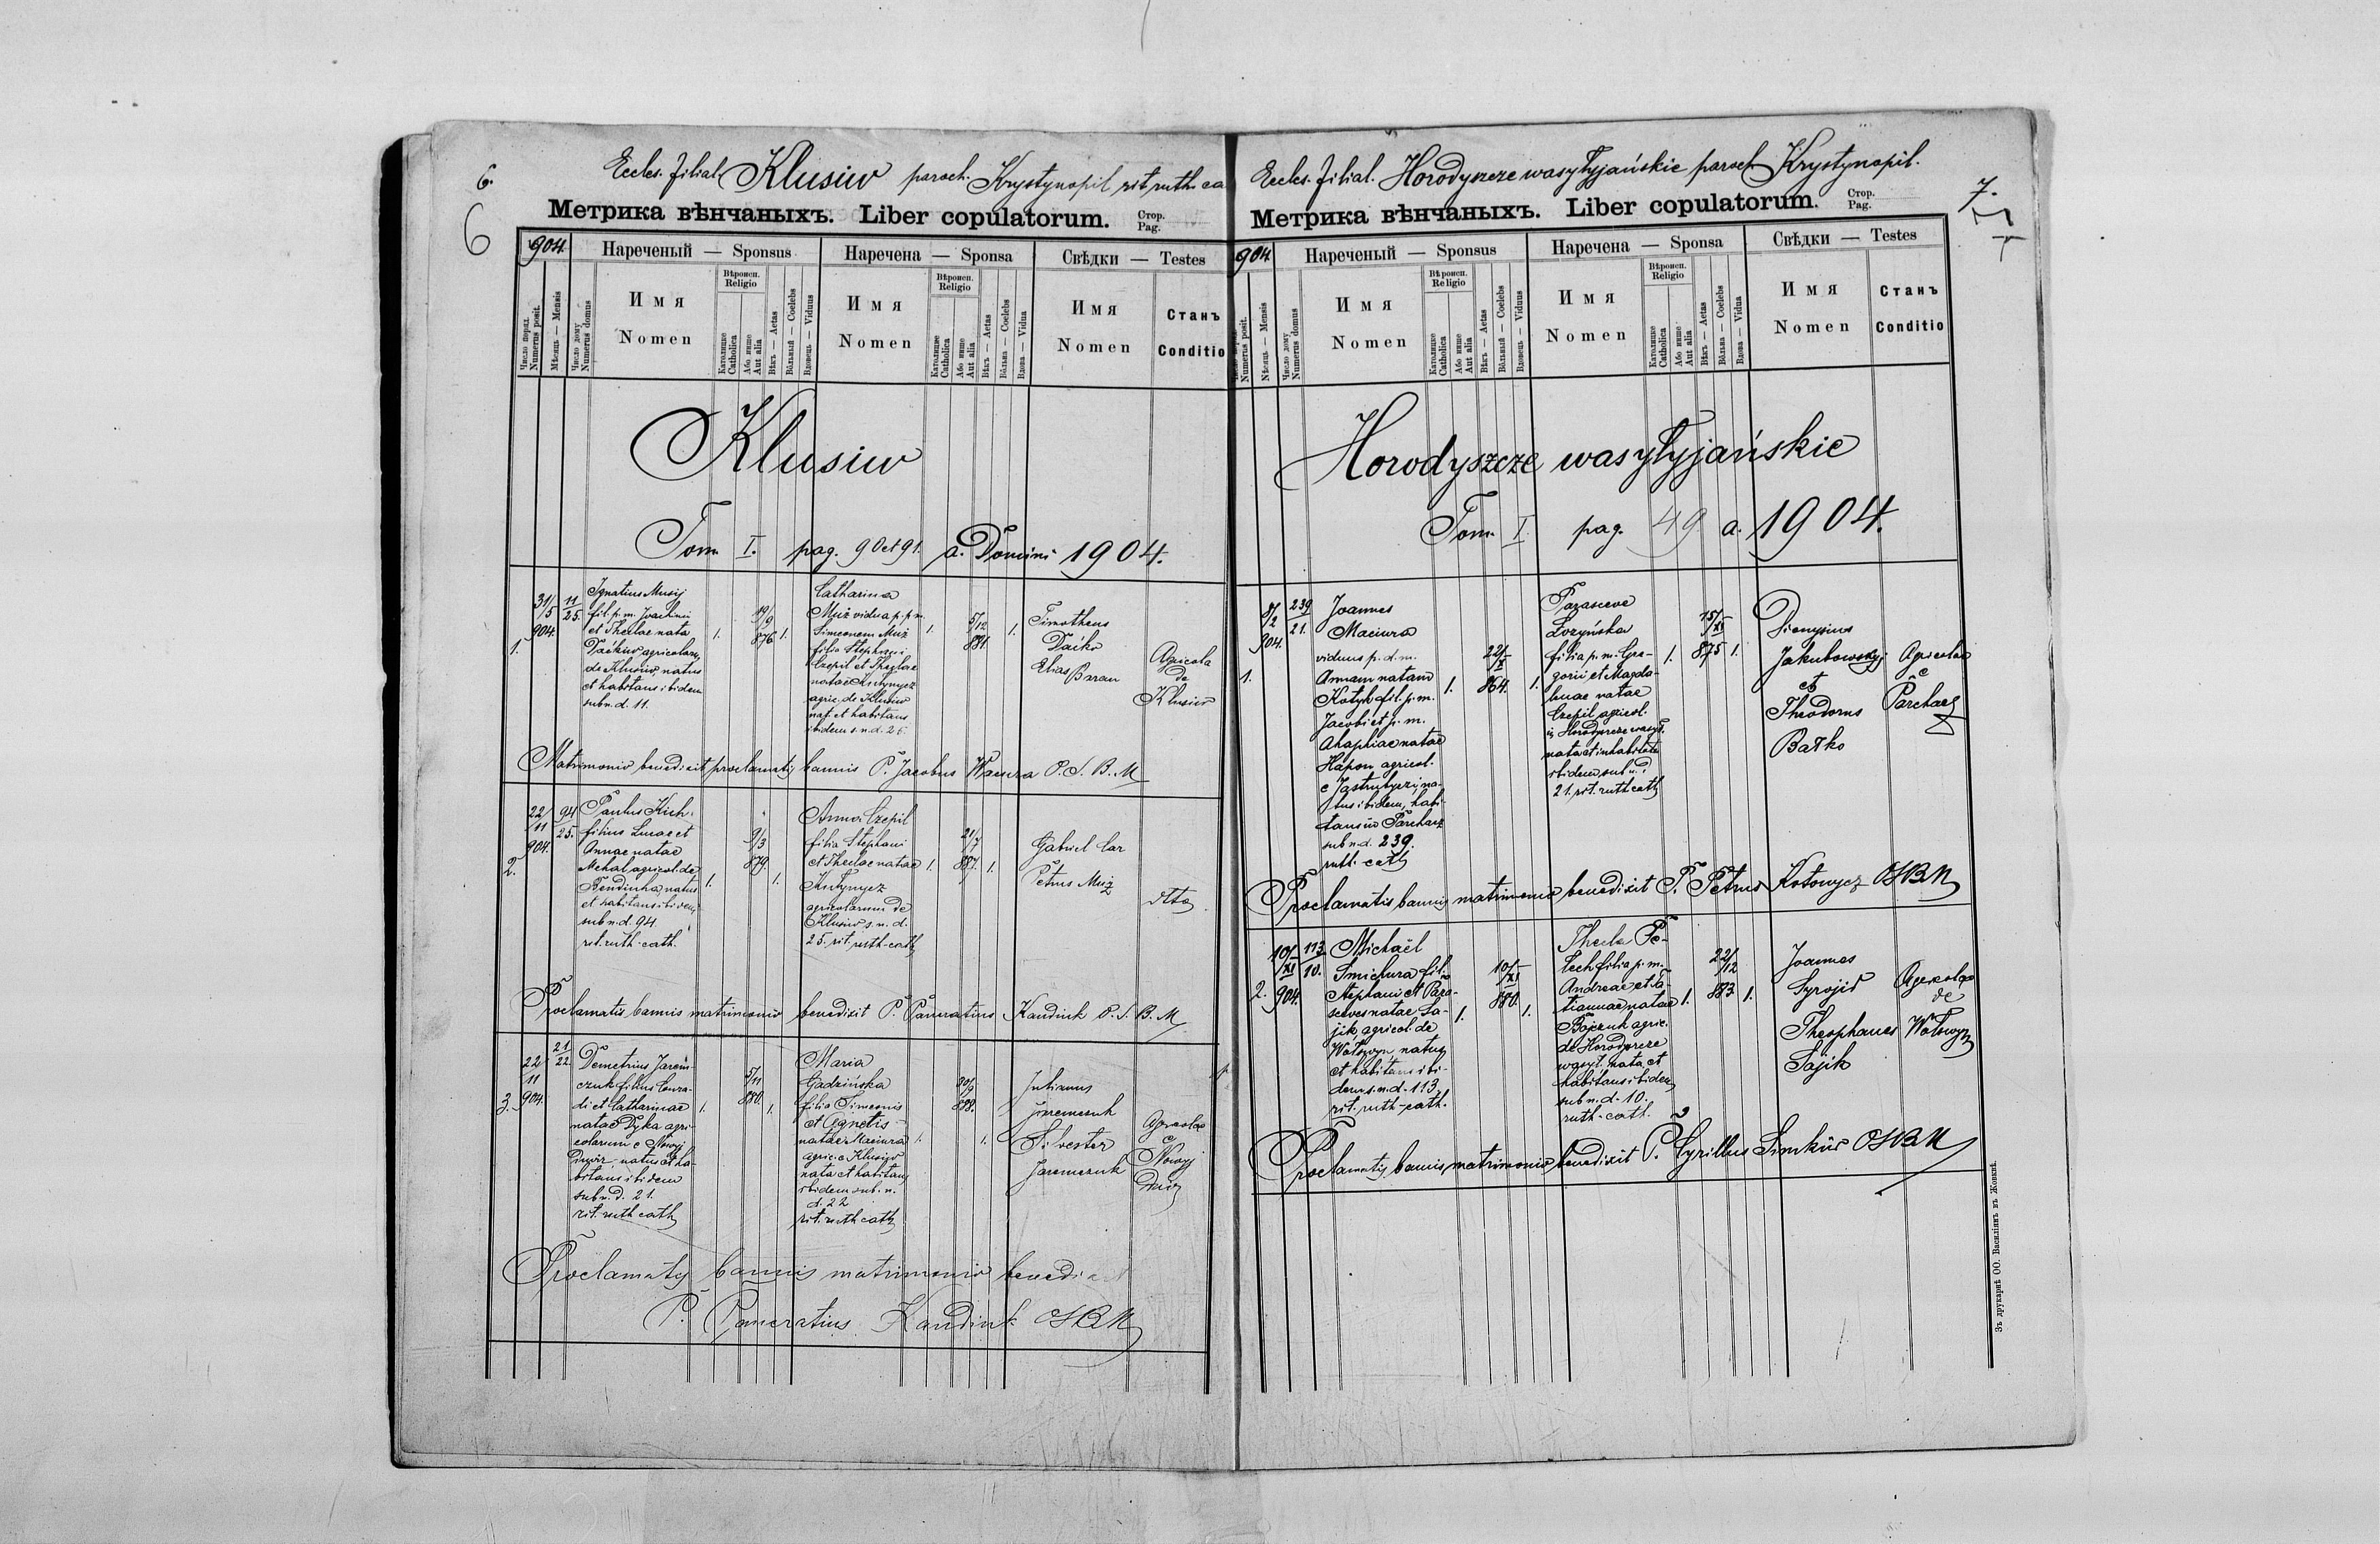 6.
6
Eccles. filial. Klusiw paroch. Krystynopil rit. ruth. ca
Метрика вѣнчаныхъ. Liber copulatorum. Стор. Pag.
904.
Нареченый — Sponsus
Наречена — Sponsa
Свѣдки — Testes
Число поряд. Numerus posit.
Мѣсяць — Mensis
Число дому Numerus domus
Имя
Nomen
Вѣроисп. Religio
Католицке Catholica
Або инше Aut alia
Вѣкъ — Aetas
Вôльный — Coelebs
Вдовець — Viduus
Имя
Nomen
Вѣроисп. Religio
Католицке Catholica
Або инше Aut alia
Вѣкъ — Aetas
Вôльна — Coelebs
Вдова — Vidua
Имя
Nomen
Станъ
Conditio
Klusiw
Tom I. pag. 90 et 91. a. Domini 1904.
1.
31/5
904.
11
25.
Ignatius Musij
fil. p. m. Joachimi
et Theclae nata
Dackiw agricolarum
de Klusiw, natus
et habitans ibidem
sub n. d. 11.
1.
19/9
876
1.
Catharina
Muż vidua p. p. m.
Simeonem Muż
filia Stephani
Czepil et Theclae
natae Kutynycz
agric. de Klusiw
nat. et habitans
ibidem s. n. d. 25.
1.
5/12
881.
1.
Timotheus
Daćko
Elias Baran
Agricola
de
Klusiw
Matrimonio benedixit proclamatis bannis P. Jacobus Wacura O. S. B. M
2.
22/11
904.
94
25.
Paulus Kich
filius Lucae et
Annae natae
Mehal agricol. de
Bendiuha natus
et habitans ibidem
sub n. d. 94.
rit. ruth-cath.
1.
9/3
879.
1.
Anna Czepil
filia Stephani
et Theclae natae
Kutynycz
agricolarum de
Klusiw s. n. d.
25. rit. ruth-cath
1.
21/7
887.
1.
Gabriel Car
Petrus Muż
dtto
Proclamatis bannis matrimonio benedixit P. Pancratius Kandiuk O. S. B. M
3.
22
11
904.
21
22.
Demetrius Jarem
czuk filius Conra-
di et Catharinae
natae Dyka agri-
colarum e Nowyj
Dwir natus et ha-
bitans ibidem
sub n. d. 21.
rit. ruth cath
1.
5/11
880.
1.
Maria
Gadzińska
filia Simeonis
et Agnetis
natae Maciura
agric. e Klusiw
nata et habitans
ibidem sub. n.
d. 22
rit. ruth cath
1.
30/9
888.
1.
Julianus
Jaremczuk
Silvester
Jaremczuk
Agricolae
e
Nowyj
Dwir
Proclamatis bannis matrimonio benedixit
P. Pancratius Kandiuk OSBM
7.
7
Eccles. filial. Horodyszcze wasyłyjańskie paroch Krystynopil.
Метрика вѣнчаныхъ. Liber copulatorum. Стор. Pag.
904.
Нареченый — Sponsus
Наречена — Sponsa
Свѣдки — Testes
Numerus posit.
Мѣсяць — Mensis
Число дому Numerus domus
Имя
Nomen
Вѣроисп. Religio
Католицке Catholica
Або инше Aut alia
Вѣкъ — Aetas
Вôльный — Coelebs
Вдовець — Viduus
Имя
Nomen
Вѣроисп. Religio
Католицке Catholica
Або инше Aut alia
Вѣкъ — Aetas
Вôльна — Coelebs
Вдова — Vidua
Имя
Nomen
Станъ
Conditio
Horodyszcze wasyłyjańskie
Tom I pag. 49 a. 1904.
1.
8/2
904.
239
21.
Joannes
Maciura
viduus p. d. m.
Annam natam
Kotyk fil. p. m.
Jacobi et p. m.
Ahaphiae natae
Hapon agricol.
e Jastrubyczi, na-
tus ibidem, habi-
tans in Parchacz
sub n. d. 239.
ruth-cath
1.
22/X
864.
1.
Parasceve
Łozyńska
filia p. m. Gre-
gorii et Magda-
lenae natae
Czepil agricol.
in Horodyszcze wasył.
nata et inhabitata
ibidem sub n. d.
21. rit. ruth cath
1.
15/XI
875
1.
Dionysius
Jakubowskyj
et
Theodorus
Bałko
Agricolae
e
Parchacz
Proclamatis bannis matrimonio benedixit P. Petrus Kotowycz OSBM
2.
10/XI
904.
113.
10.
Michaël
Smichura fil.
Stephani et Para-
scevesnatae Sa-
jik agricol. de
Wołswyn natus
et habitans ibi-
dem s. n. d. 113.
rit. ruth-cath.
1.
10/XI
880.
1.
Thecla Pe-
lech filia p. m.
Andreae et Ta-
tiannae natae
Bojczuk agric.
de Horodyszcze
wasył. nata et
habitans ibidem
sub n. d. 10.
ruth-cath.
1.
22/12
883
1.
Joannes
Syrojid
Theophanes
Sajik
Agricolae
de
Wołswyn
Proclamatis bannis matrimonio benedixit P. Cyrillus Simkiw OSBM
Зъ друкарнѣ ОО. Василіянъ въ Жовквѣ.